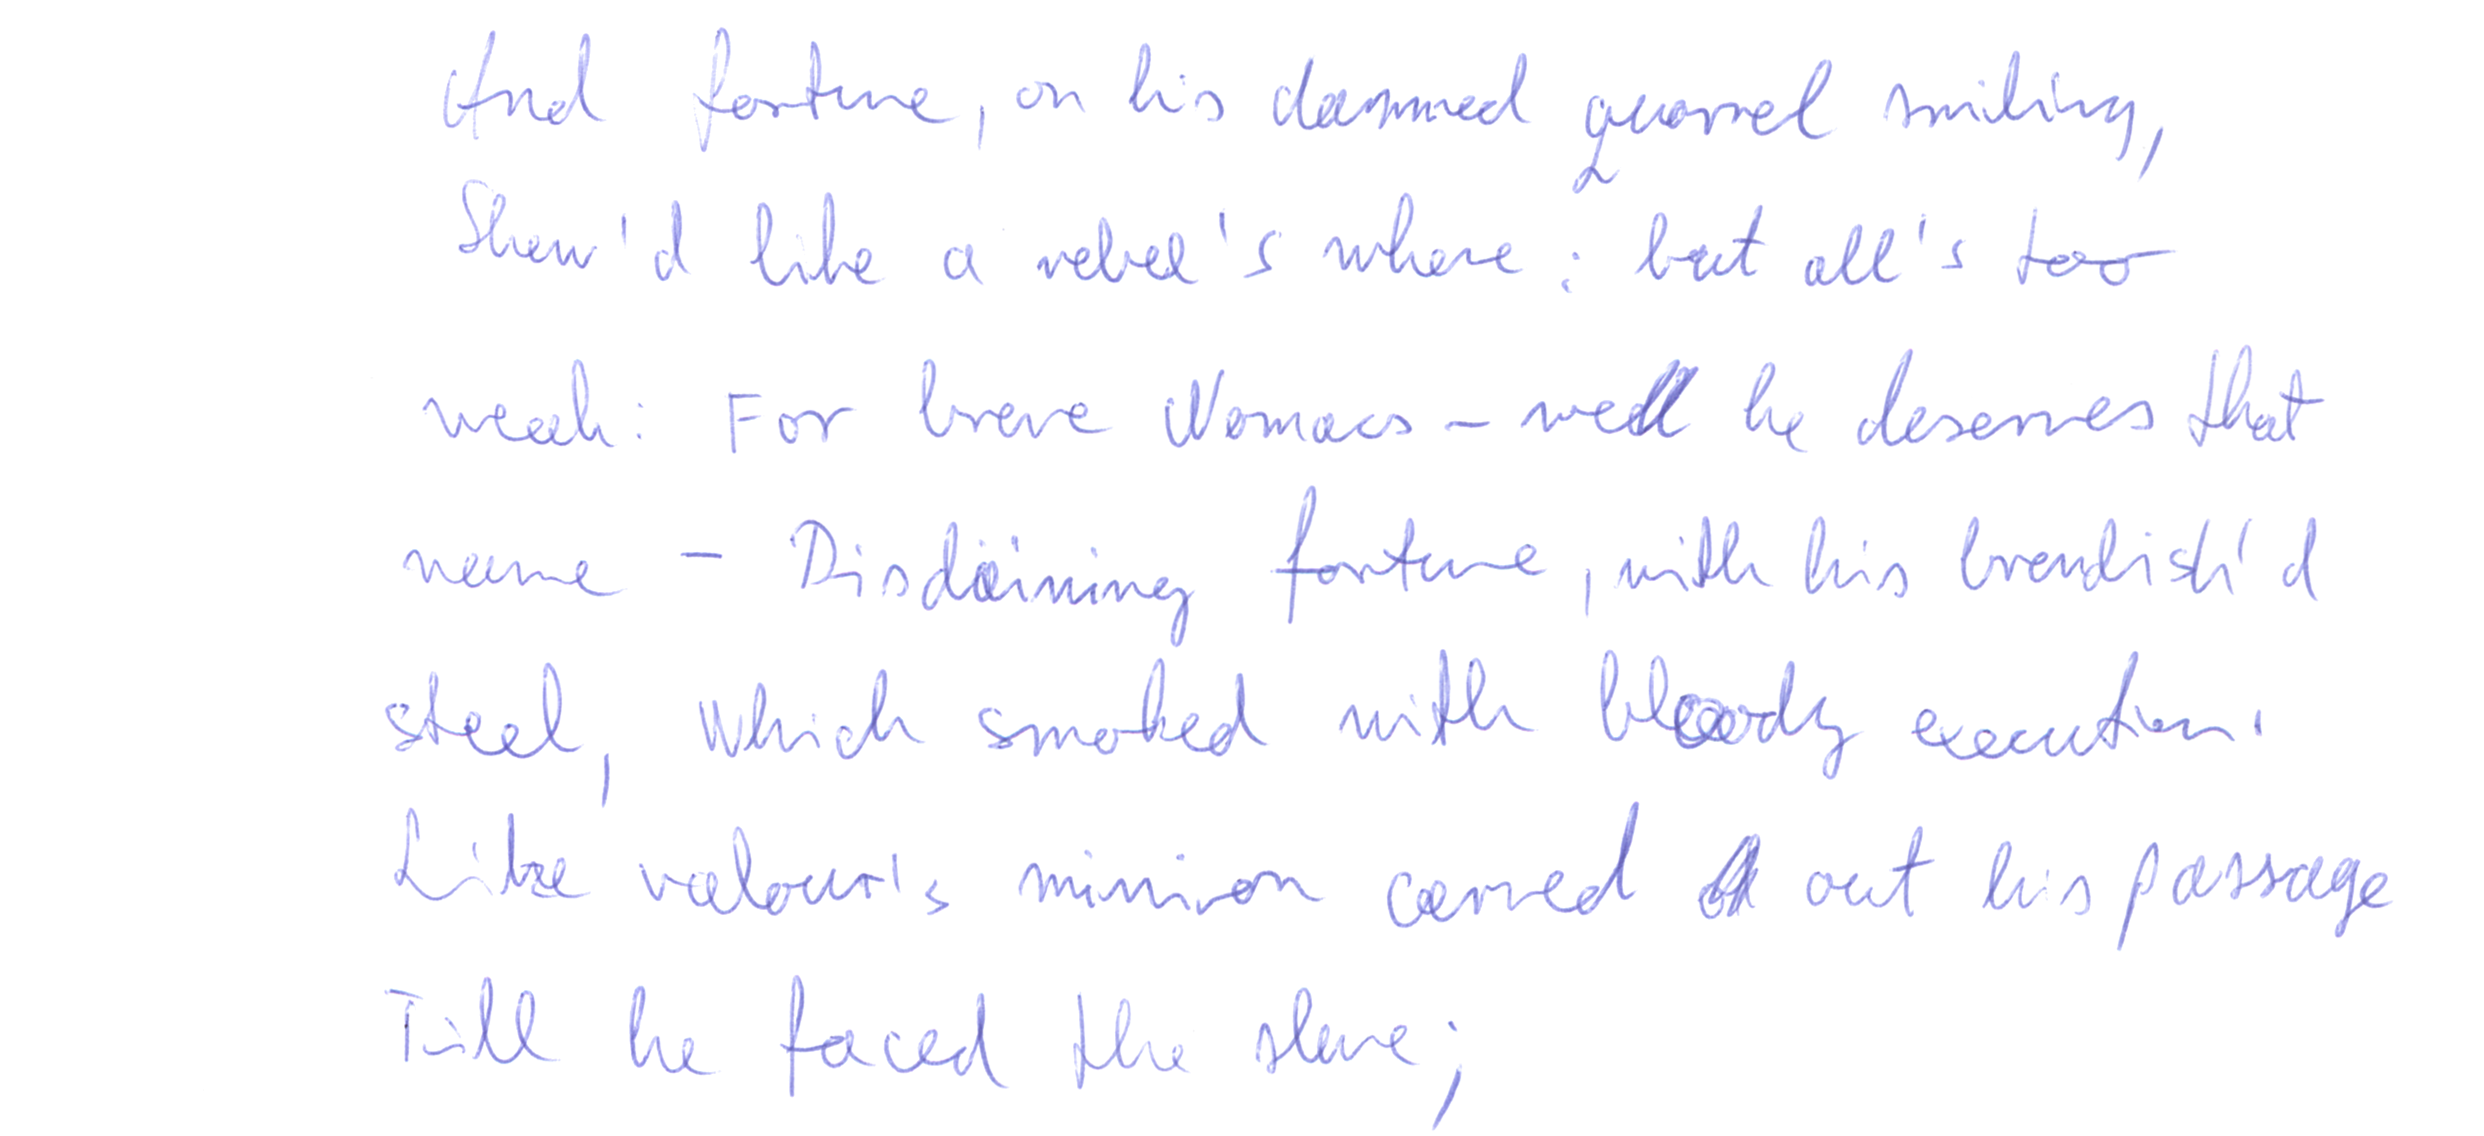 And fortune, on his damned quarrel smiling,
Shew'd like a rebel's whore: but all's too
weak: For brave Nomacs - well he deserves that
name - Disdaining fortune, with his brandish'd
steel, Which smoked with bloody execution.
Like valour's minion carved out his passage
Till he faced the slave;